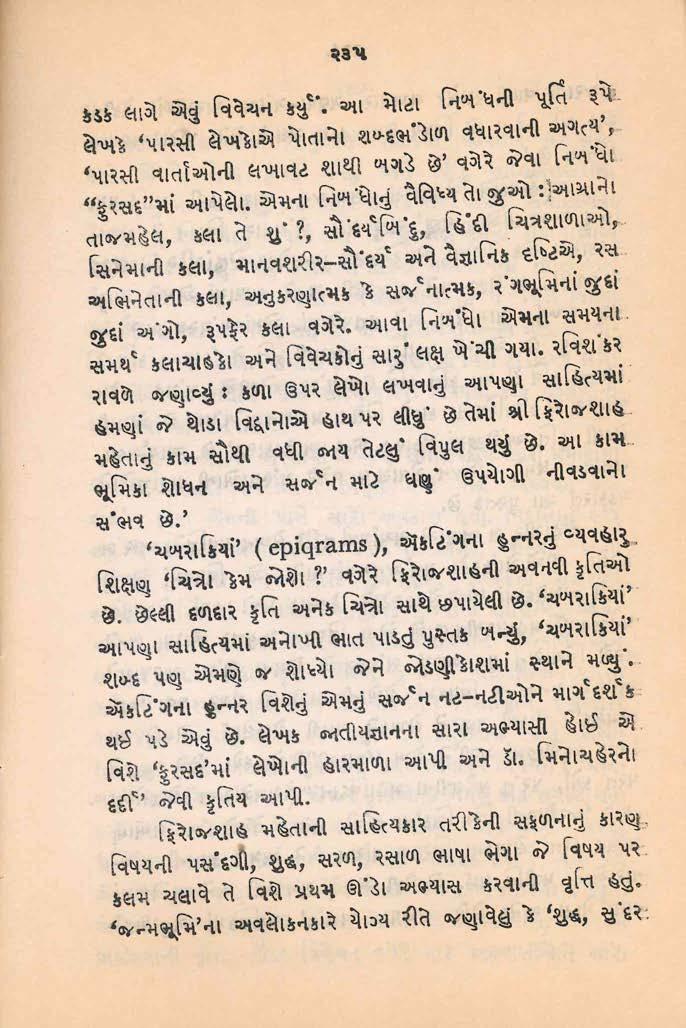 ૨૩૫
કડક લાગે એવું વિવેચન કર્યું. આ મોટા નિબંધની પૂર્તિ રૂપે
લેખકે ‘પારસી લેખકોએ પોતાનો શબ્દભંડોળ વધારવાની અગત્ય’,
‘પારસી વાર્તાઓની લખાવટ શાથી બગડે છે’ વગેરે જેવા નિબંધો
“ફુરસદ”માં આપેલો. એમના નિબંધોનું વૈવિધ્ય તો જુઓ : આગ્રાનો
તાજમહેલ, કલા તે શું ?, સૌંદર્યબિંદુ, હિંદી ચિત્રશાળાઓ,
સિનેમાની કલા, માનવશરીર–સૌંદર્ય અને વૈજ્ઞાનિક દૃષ્ટિએ, રસ
અભિનેતાની કલા, અનુકરણાત્મક કે સર્જનાત્મક, રંગભૂમિનાં જુદાં
જુદાં અંગો, રૂપફેર કલા વગેરે. આવા નિબંધો એમના સમયના
સમર્થ કલાચાહકો અને વિવેચકોનું સારું લક્ષ ખેંચી ગયા. રવિશંકર
રાવળે જણાવ્યું : કળા ઉપર લેખો લખવાનું આપણા સાહિત્યમાં
હમણાં જે થોડા વિદ્વાનોએ હાથ પર લીધું છે તેમાં શ્રી ફિરોજશાહ
મહેતાનું કામ સૌથી વધી જાય તેટલું વિપુલ થયું છે. આ કામ
ભૂમિકા શોધન અને સર્જન માટે ઘણું ઉપયોગી નીવડવાનો
સંભવ છે.’
‘ચબરાકિયાં’ (epiqrams), ઍકટિંગના હુન્નરનું વ્યવહારુ
શિક્ષણ ‘ચિત્રો કેમ જોશો ?’ વગેરે ફિરોજશાહની અવનવી કૃતિઓ
છે. છેલ્લી દળદાર કૃતિ અનેક ચિત્રો સાથે છપાયેલી છે. ‘ચબરાકિયાં’
આપણા સાહિત્યમાં અનોખી ભાત પાડતું પુસ્તક બન્યું, ‘ચબરાકિયાં’
શબ્દ પણ એમણે જ શોધ્યો જેને જોડણીકોશમાં સ્થાને મળ્યું.
ઍકટિંગના હુન્નર વિશેનું એમનું સર્જન નટ-નટીઓને માર્ગદર્શક
થઈ પડે એવું છે. લેખક જાતીયજ્ઞાનના સારા અભ્યાસી હોઈ એ
વિશે ‘ફુરસદ’માં લેખોની હારમાળા આપી અને ડૉ. મિનોચહેરનો
દર્દી’ જેવી કૃતિય આપી.
ફિરોજશાહ મહેતાની સાહિત્યકાર તરીકેની સફળનાનું કારણ
વિષયની પસંદગી, શુદ્ધ, સરળ, રસાળ ભાષા ભેગા જે વિષય પર
કલમ ચલાવે તે વિશે પ્રથમ ઊંડો અભ્યાસ કરવાની વૃત્તિ હતું.
‘જન્મભૂમિ’ના અવલોકનકારે યોગ્ય રીતે જણાવેલું કે ‘શુદ્ધ, સુંદર